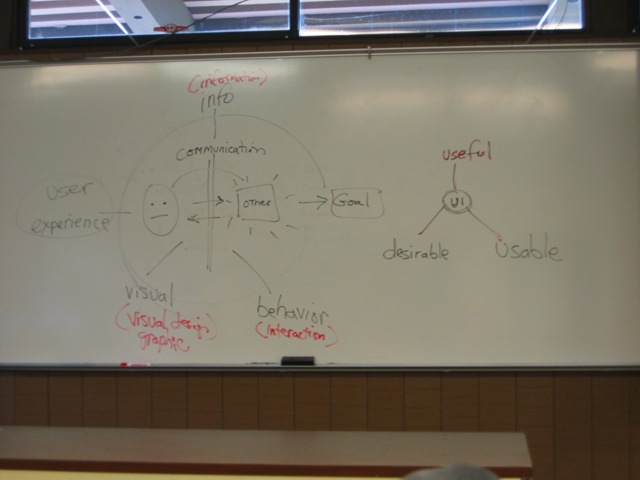 (information)
info
communication
user
experience
other
Goal
visual
(visual design
graphic
behavior
(interaction)
useful
UI
desirable
Usable